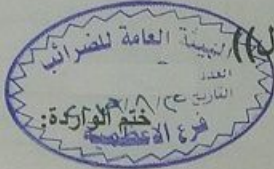 الهيئة العامة للضرائب
العدد
التاريخ
ختم الواردة:
فرع الاعظمية